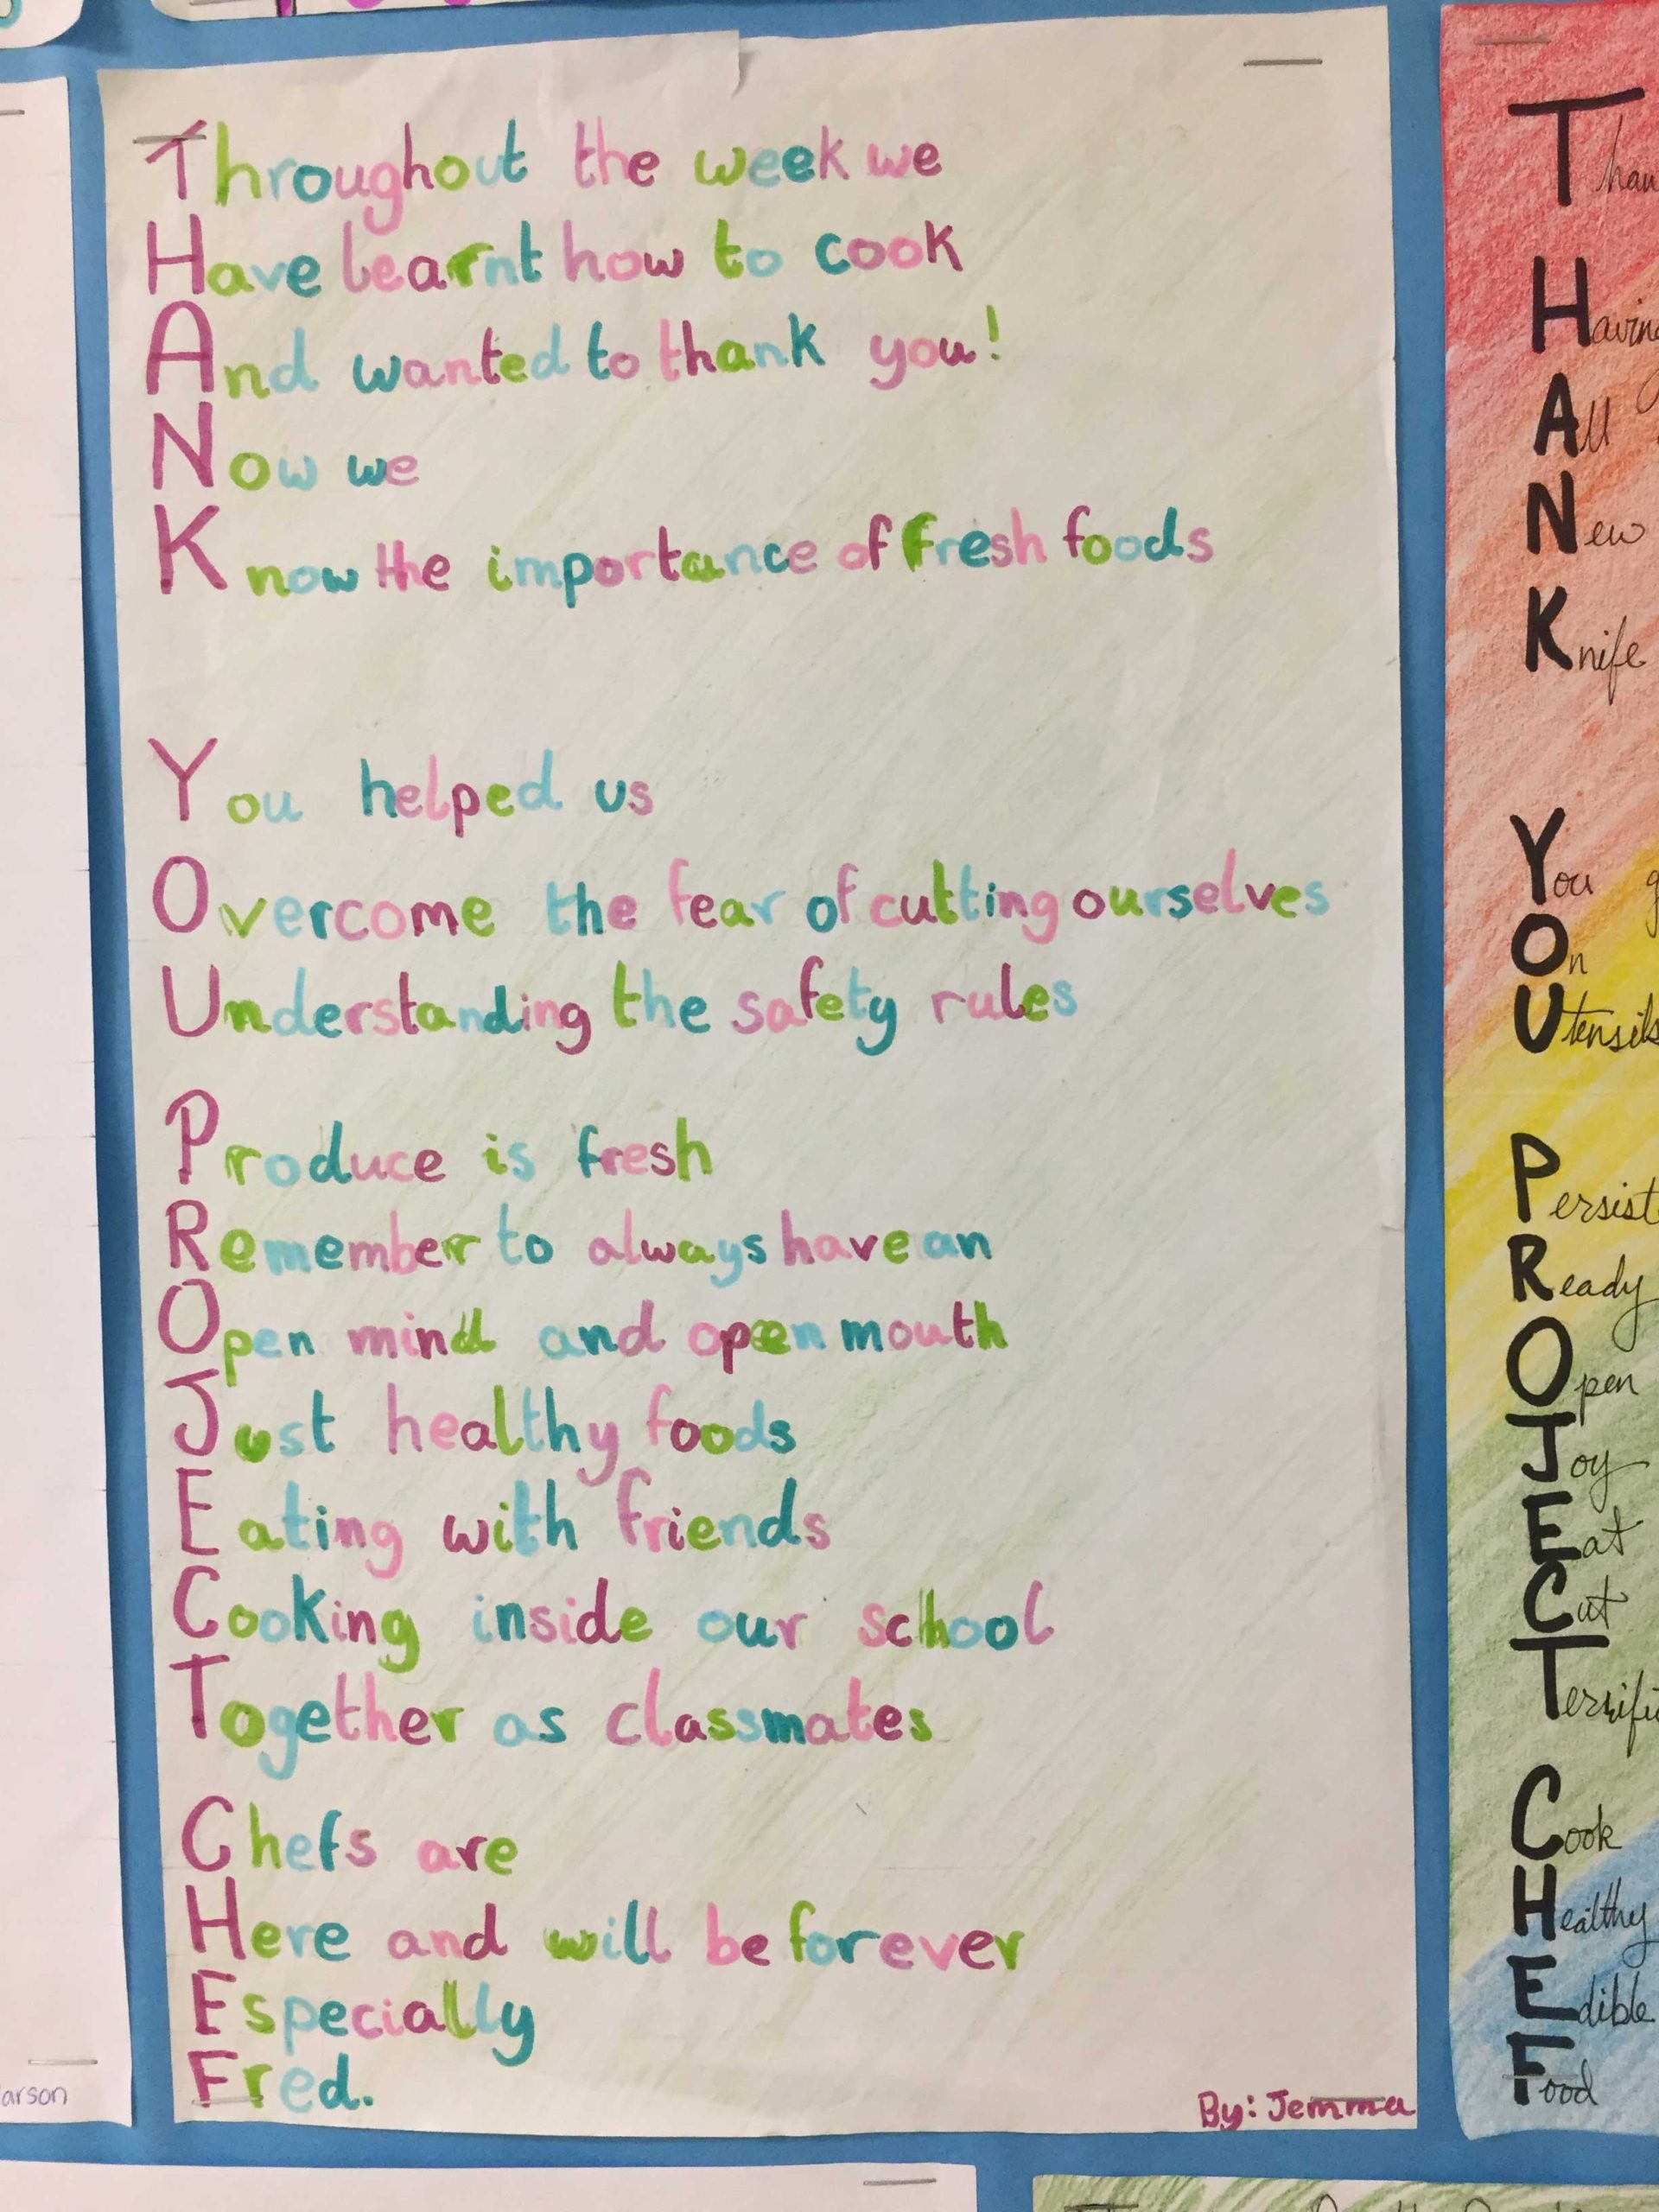 Throughout the week we
Have learnt how to cook
And wanted to thank you!
Now we
Know the importance of fresh foods
You helped us
Overcome the fear of cutting ourselves
Understanding the safety rules
Produce is fresh
Remember to always have an
Open mind and open mouth
Just healthy foods
Eating with friends
Cooking inside our school
Together as classmates
Chefs are
Here and will be forever
Especially
Fred.
By: Jemma
Having
All
New
Knife
You
On
Utensils
Ready
Open
Joy
Eat
Cut
Cook
Healthy
Edible
Food
arson